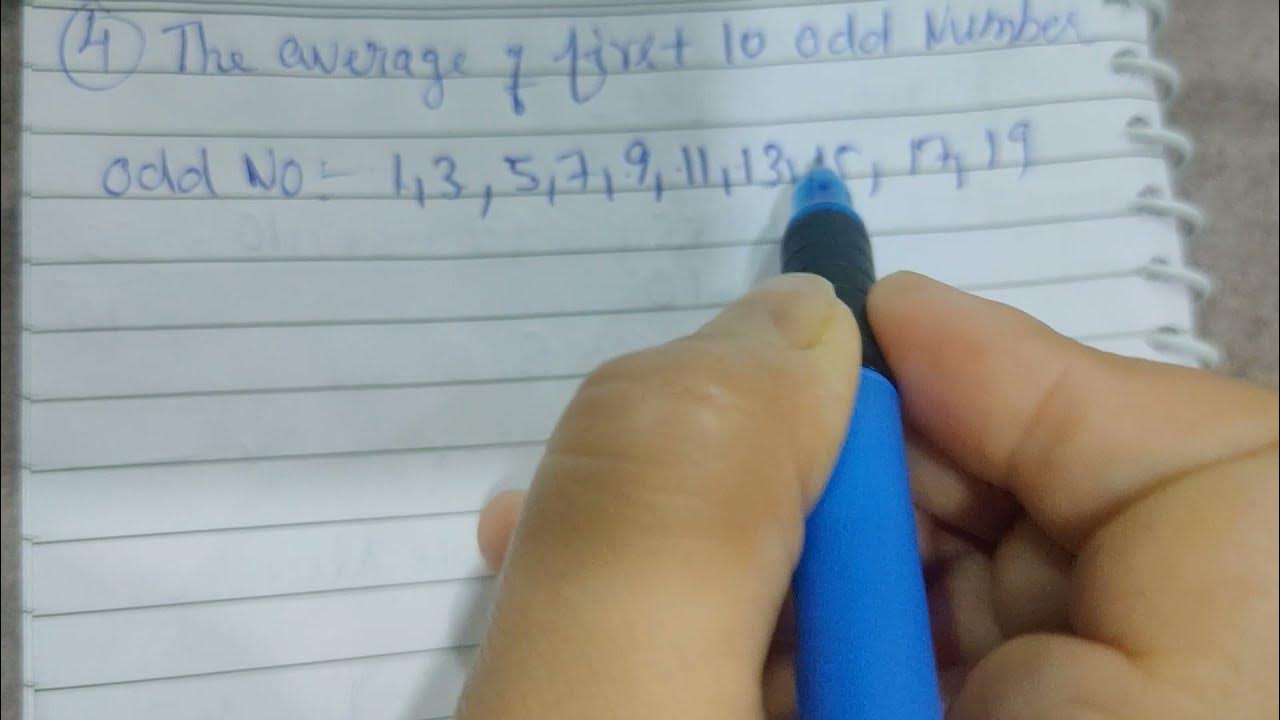 4 The average of first 10 odd Number
odd No:- 1,3,5,7,9,11,13,15,17,19